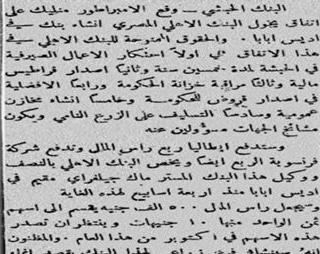 البنك الحبشي — وقع الامبراطور منليك على
اتفاق يخول البنك الاهلي المصري انشاء بنك في
اديس ابابا . والحقوق الممنوحة للبنك الاهلي في
هذا الاتفاق هي اولاً احتكار الاعمال الصيرفية
في الحبشة لمدة خمسين سنة وثانياً اصدار قراطيس
مالية وثالثاً مراقبة خزانة الحكومة ورابعاً الافضلية
في اصدار قروض للحكومة وخامساً انشاء مخازن
عمومية وسادساً التسليف على الزرع النامي ويكون
مشائخ الجهات مسؤولين عنه
وستدفع ايطاليا ربع راس المال وتدفع شركة
فرنسوية الربع ايضاً ويختص البنك الاهلي بالنصف
ووكيل هذا البنك المستر ماك جيلفراي مقيم في
اديس ابابا منذ اربعة اسابيع لهذه الغاية
وسيجعل راس المال ٥٠٠ الف جنيه يقسم الى اسهم
ثمن الواحد منها ١٠ جنيهات وينتظر ان تصدر
هذه الاسهم في اكتوبر من هذا العام . والمظنون